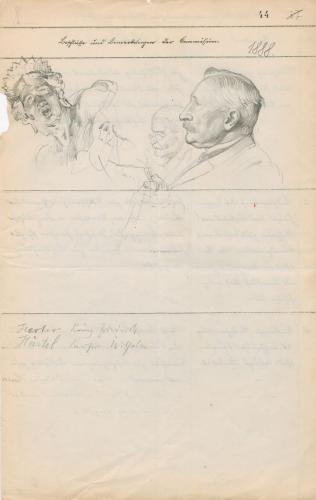 44
Beschlüsse und Bemerkungen der Commission.
1888.
Herter König Friedrich
Härtel Kaiser Wilhelm